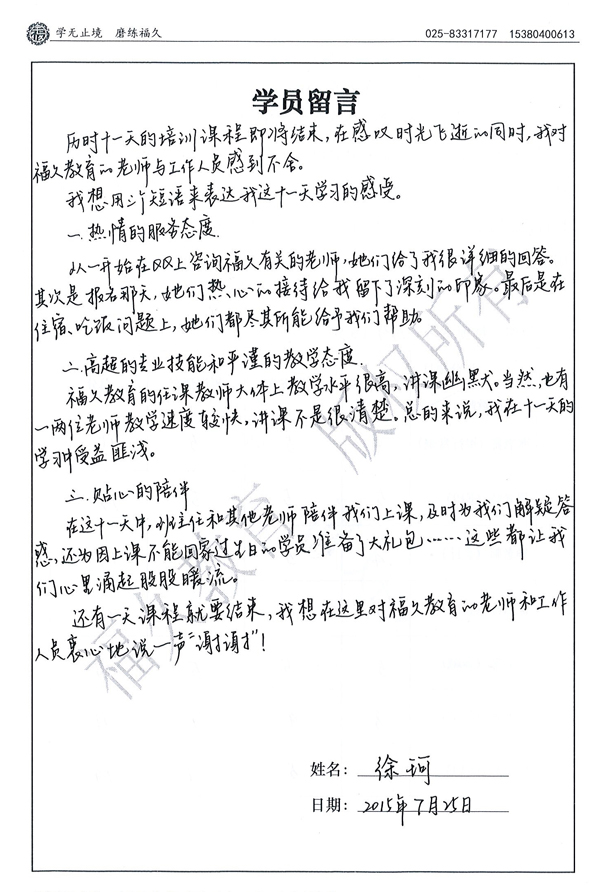 学无止境 磨练福久
025-83317177 15380400613
学员留言
历时十一天的培训课程即将结束,在感叹时光飞逝的同时,我对
福久教育的老师与工作人员感到不舍。
我想用三个短语来表达我这十一天学习的感受。
一.热情的服务态度.
从一开始在QQ上咨询福久有关的老师,她们给了我很详细的回答。
其次是报名那天,她们热心的接待给我留下了深刻的印象。最后是在
住宿、吃饭问题上,她们都尽其所能给予我们帮助。
二.高超的专业技能和严谨的教学态度.
福久教育的任课教师大体上教学水平很高,讲课幽默。当然,也有
一两位老师教学速度较快,讲课不是很清楚。总的来说,我在十一天的
学习中受益匪浅。
三.贴心的陪伴
在这十一天中,班主任和其他老师陪伴我们上课,及时为我们解疑答
惑,还为因上课不能回家过生日的学员准备了大礼包……这些都让我
们心里涌起股股暖流。
还有一天课程就要结束,我想在这里对福久教育的老师和工作
人员衷心地说一声"谢谢"!
姓名: 徐珂
日期: 2015年7月25日
福久教育 版权所有